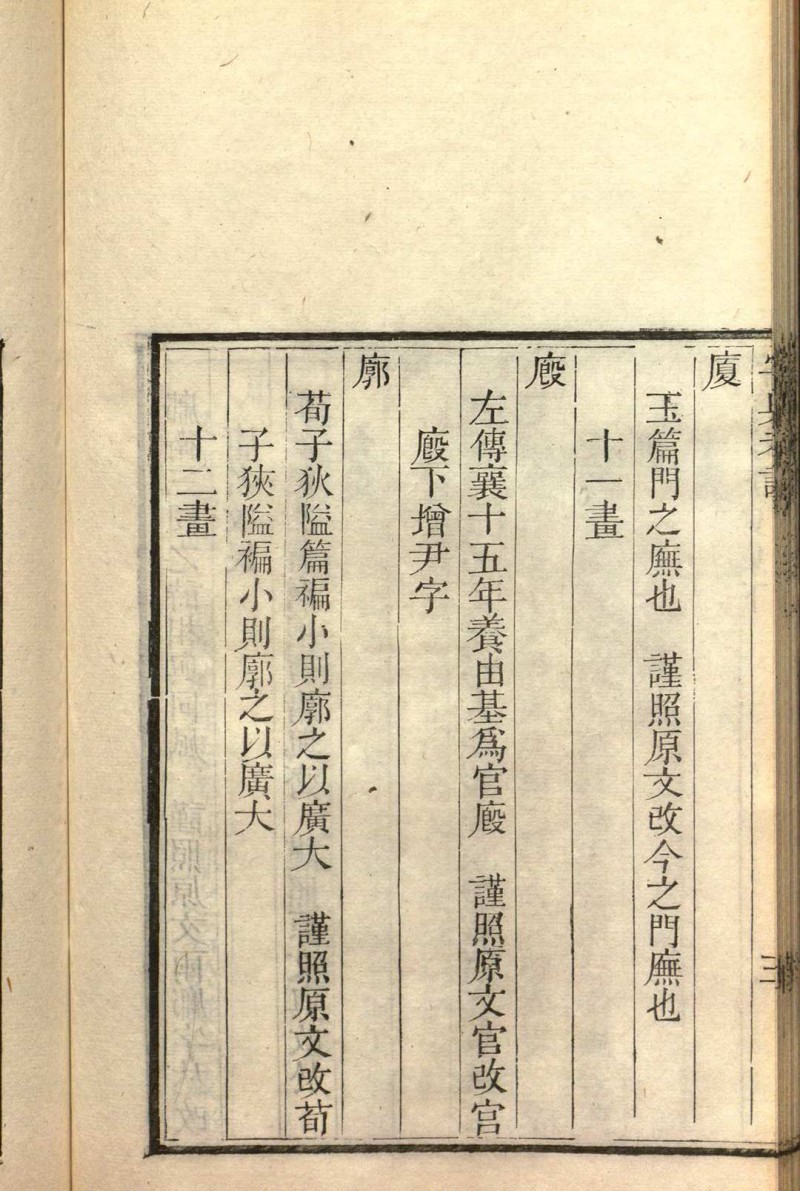 廈
玉篇門之廡也　謹照原文改今之門廡也
十一畫
廏
左傳襄十五年養由基爲官廏　謹照原文官改宮
廏下增尹字
廓
荀子狄隘篇褊小則廓之以廣大　謹照原文改荀
子狹隘褊小則廓之以廣大
十二畫